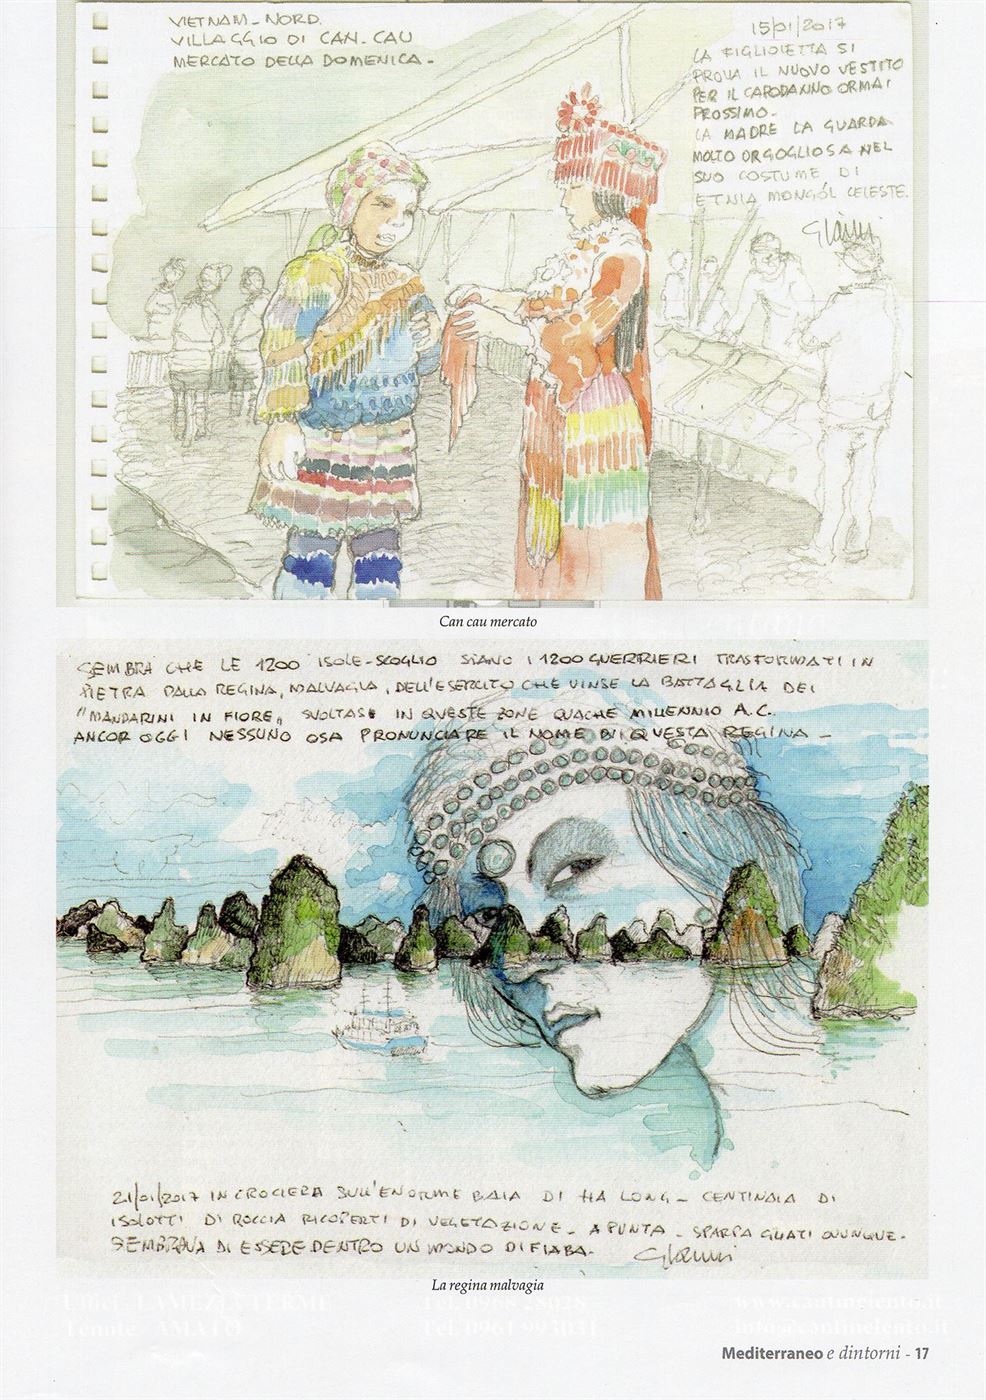 VIETNAM - NORD.
VILLAGGIO DI CAN. CAU
MERCATO DELLA DOMENICA -
15/01/2017
LA FIGLIOLETTA SI
PROVA IL NUOVO VESTITO
PER IL CAPODANNO ORMAI
PROSSIMO -
LA MADRE LA GUARDA
MOLTO ORGOGLIOSA NEL
SUO COSTUME DI
ETNIA MONGÓL CELESTE.
Gianni
Can cau mercato
SEMBRA CHE LE 1200 ISOLE-SCOGLIO SIANO I 1200 GUERRIERI TRASFORMATI IN
PIETRA DALLA REGINA, MALVAGIA, DELL'ESERCITO CHE VINSE LA BATTAGLIA DEI
"MANDARINI IN FIORE" SVOLTASI IN QUESTE ZONE QUACHE MILLENNIO A.C.
ANCOR OGGI NESSUNO OSA PRONUNCIARE IL NOME DI QUESTA REGINA -
21/01/2017 IN CROCIERA SULL'ENORME BAIA DI HA LONG - CENTINAIA DI
ISOLOTTI DI ROCCIA RICOPERTI DI VEGETAZIONE - A PUNTA - SPARPAGLIATI OVUNQUE.
SEMBRAVA DI ESSERE DENTRO UN MONDO DI FIABA.
Gianni
La regina malvagia
LAMEZIA TERME
Tenute AMATO
Tel. 0961 993031
www.cantinelento.it
info@cantinelento.it
Mediterraneo e dintorni - 17